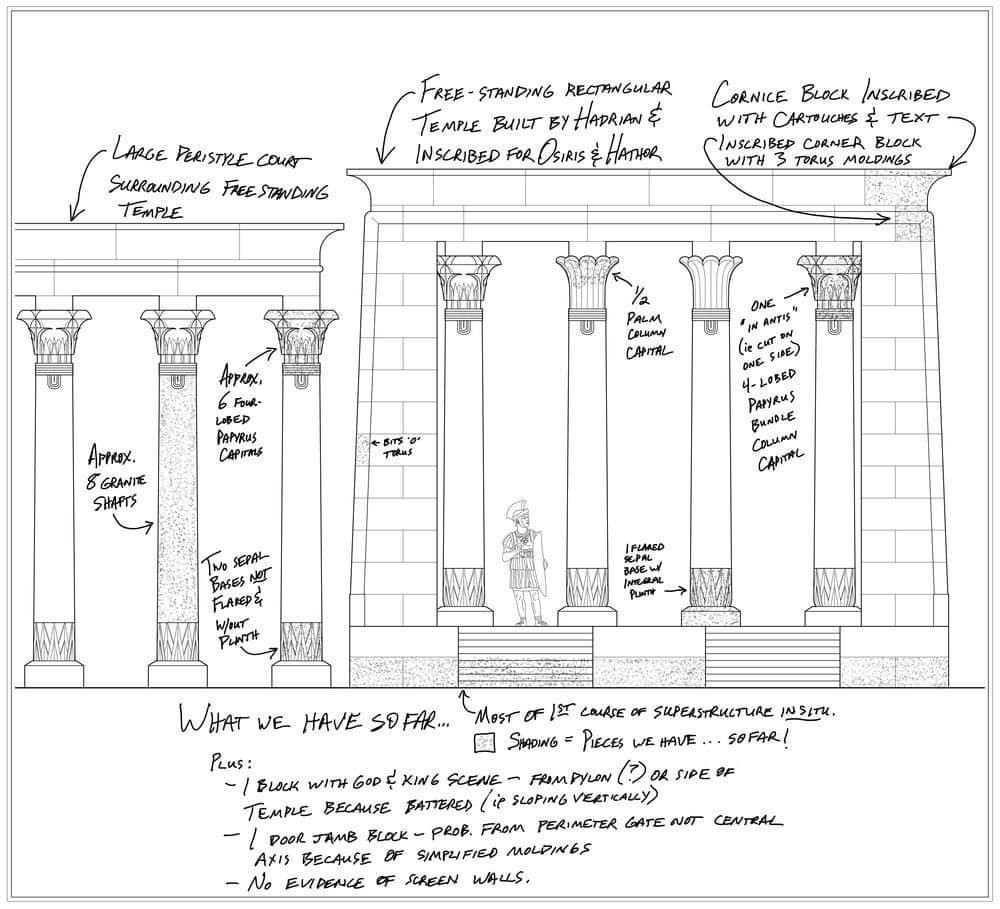 FREE-STANDING RECTANGULAR
TEMPLE BUILT BY HADRIAN &
INSCRIBED FOR OSIRIS & HATHOR
CORNICE BLOCK INSCRIBED
WITH CARTOUCHES & TEXT
INSCRIBED CORNER BLOCK
WITH 3 TORUS MOLDINGS
LARGE PERISTYLE COURT
SURROUNDING FREESTANDING
TEMPLE
1/2
PALM
COLUMN
CAPITAL
ONE
"IN ANTIS"
(ie CUT ON
ONE SIDE)
4-LOBED
PAPYRUS
BUNDLE
COLUMN
CAPITAL
APPROX.
6 FOUR-
LOBED
PAPYRUS
CAPITALS
BITS 'O'
TORUS
APPROX.
8 GRANITE
SHAFTS
TWO SEPAL
BASES NOT
FLARED &
W/OUT
PLINTH
1 FLARED
SEPAL
BASE W/
INTEGRAL
PLINTH
WHAT WE HAVE SO FAR...
MOST OF 1ST COURSE OF SUPERSTRUCTURE IN SITU.
SHADING = PIECES WE HAVE... SO FAR!
PLUS:
- 1 BLOCK WITH GOD & KING SCENE - FROM PYLON (?) OR SIDE OF
TEMPLE BECAUSE BATTERED (ie SLOPING VERTICALLY)
- 1 DOOR JAMB BLOCK - PROB. FROM PERIMETER GATE NOT CENTRAL
AXIS BECAUSE OF SIMPLIFIED MOLDINGS
- NO EVIDENCE OF SCREEN WALLS.